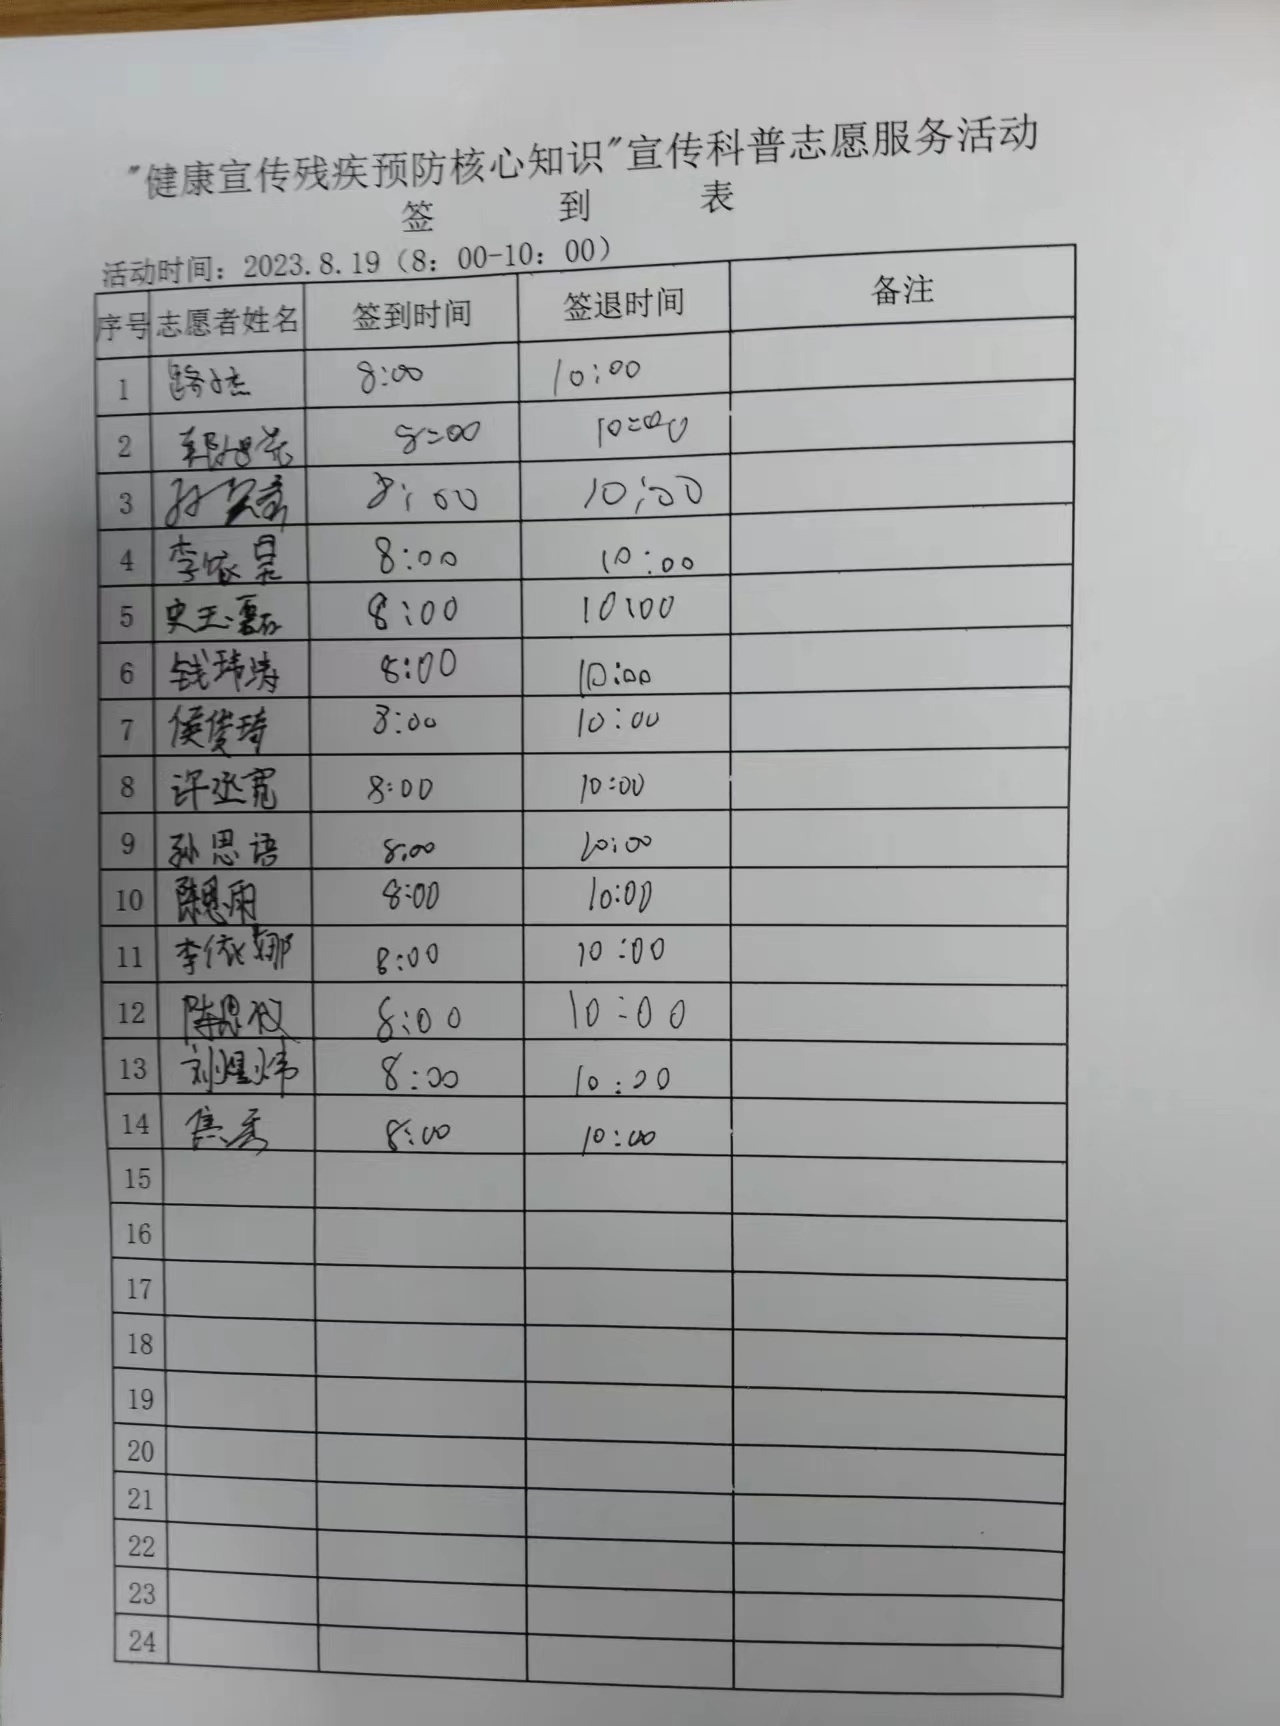 "健康宣传残疾预防核心知识"宣传科普志愿服务活动
签 到 表
活动时间：2023.8.19（8：00-10：00）
序号 志愿者姓名 签到时间 签退时间 备注
1 路杰 8:00 10:00
2 8:00 10:00
3 8:00 10:00
4 李依昊 8:00 10:00
5 史玉磊 8:00 10:00
6 钱玮涛 8:00 10:00
7 侯俊琦 8:00 10:00
8 许丞宽 8:00 10:00
9 孙思语 8:00 10:00
10 陈思雨 8:00 10:00
11 李依娜 8:00 10:00
12 陈思 8:00 10:00
13 刘煜炜 8:00 10:00
14 8:00 10:00
15
16
17
18
19
20
21
22
23
24